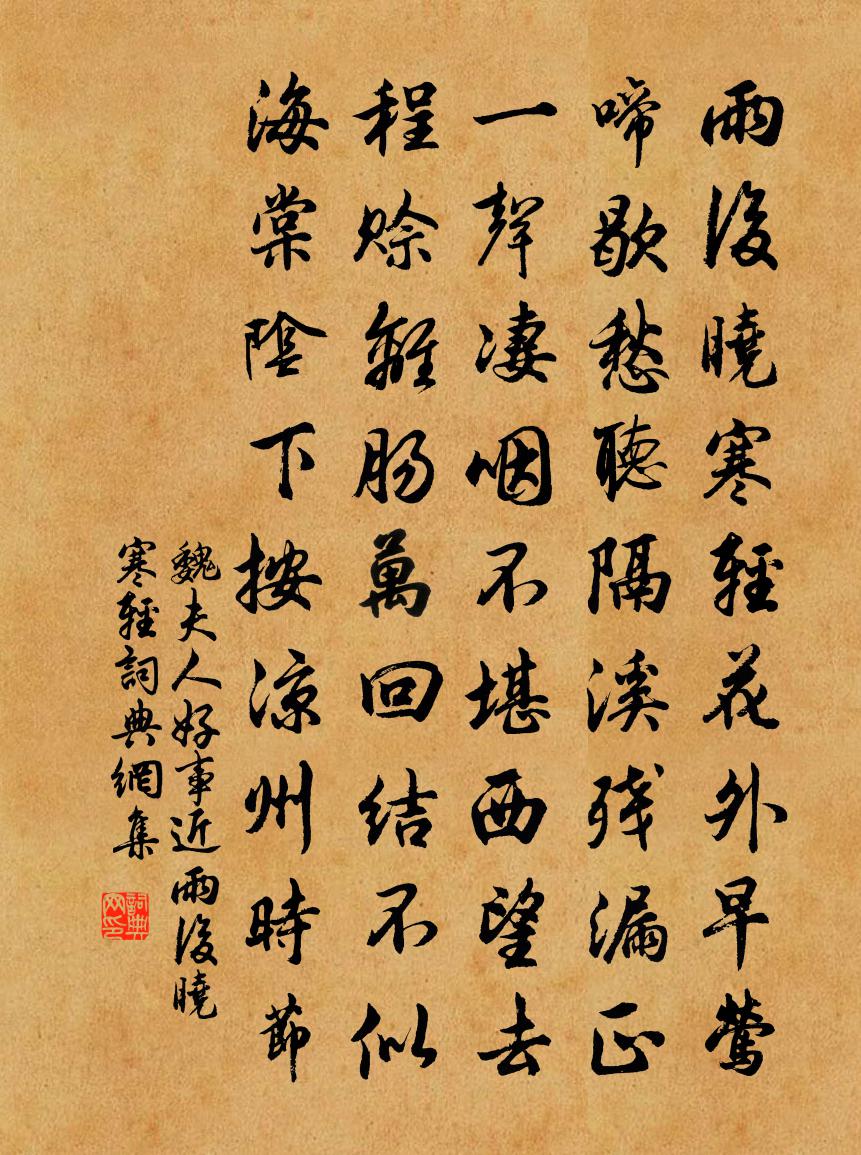 雨後曉寒輕花外早鶯
啼歇愁聽隔溪殘漏正
一聲凄咽不堪西望去
程賒離腸萬回結不似
海棠陰下按涼州時節
魏夫人好事近雨後曉
寒輕詞典網集
詞典
网印